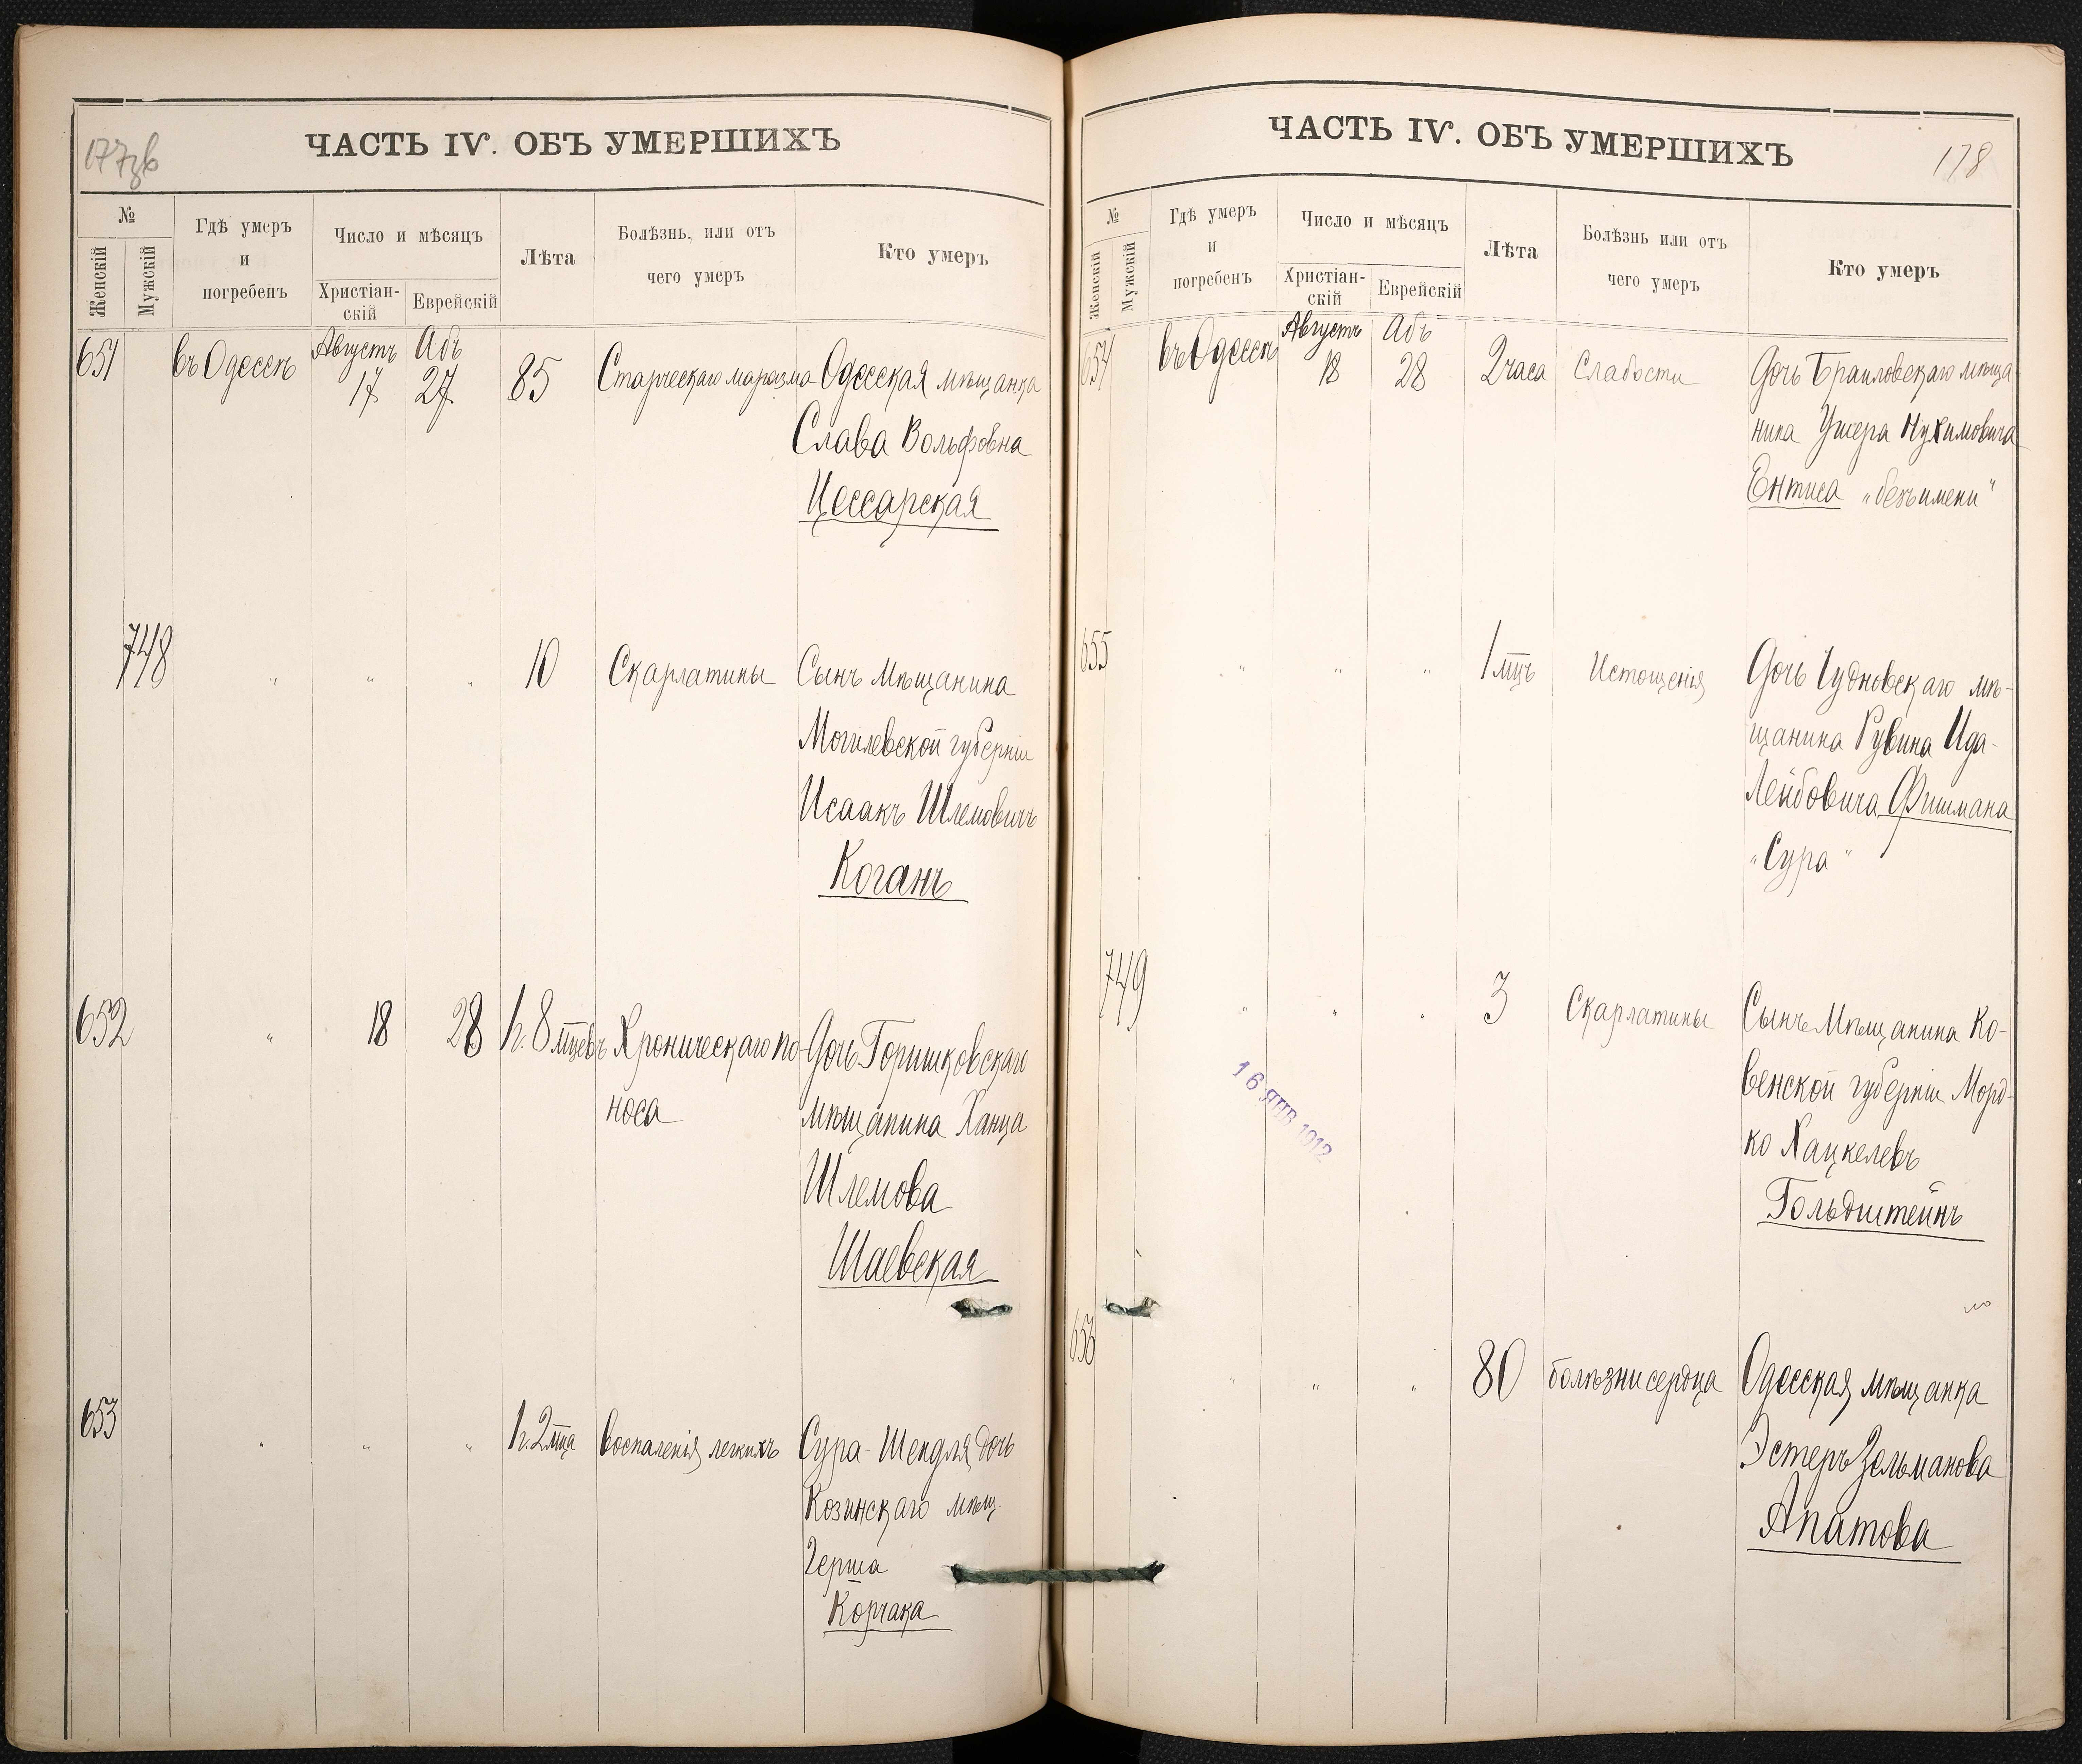 177об
ЧАСТЬ IV. ОБЪ УМЕРШИХЪ
№
Женскій
Мужскій
Гдѣ умеръ
и
погребенъ
Число и мѣсяцъ
Христіан-
скій
Еврейскій
Лѣта
Болѣзнь, или отъ
чего умеръ
Кто умеръ
651 въ Одессѣ Августъ 17 Абъ 27 85 Старческаго маразма Одесская мѣщанка
Слава Вольфовна
Цессарская
748 " " " 10 Скарлатины Сынъ Мѣщанина
Могилевской губерніи
Исаакъ Шлемовичъ
Коганъ
652 " 18 28 1г. 8 мцевъ Хроническаго по- Дочь Горишковскаго
носа мѣщанина Ханца
Шлемова
Шаевская
653 " " " 1г. 2 мца воспаленія легкихъ Сура-Шендля дочь
Козинскаго мѣщ.
Герша
Корчака
ЧАСТЬ IV. ОБЪ УМЕРШИХЪ
178
№
Женскій
Мужскій
Гдѣ умеръ
и
погребенъ
Число и мѣсяцъ
Христіан-
скій
Еврейскій
Лѣта
Болѣзнь или отъ
чего умеръ
Кто умеръ
654 въ Одессѣ Августъ 18 Абъ 28 2 часа Слабости Дочь Браиловскаго мѣща-
нина Ушера Нухимовича
Ентиса „безъ имени"
655 " " " 1 мцъ Истощенія Дочь Чудновскаго мѣ-
щанина Рувина Ида-
Лейбовича Фишмана
„Сура"
749 " " " 3 Скарлатины Сынъ Мѣщанина Ко-
венской губерніи Морд-
ко Хацкелевъ
Гольдштейнъ
16 ЯНВ 1912
656 " " " 80 болѣзни сердца Одесская мѣщанка
Эстеръ Зельманова
Апатова